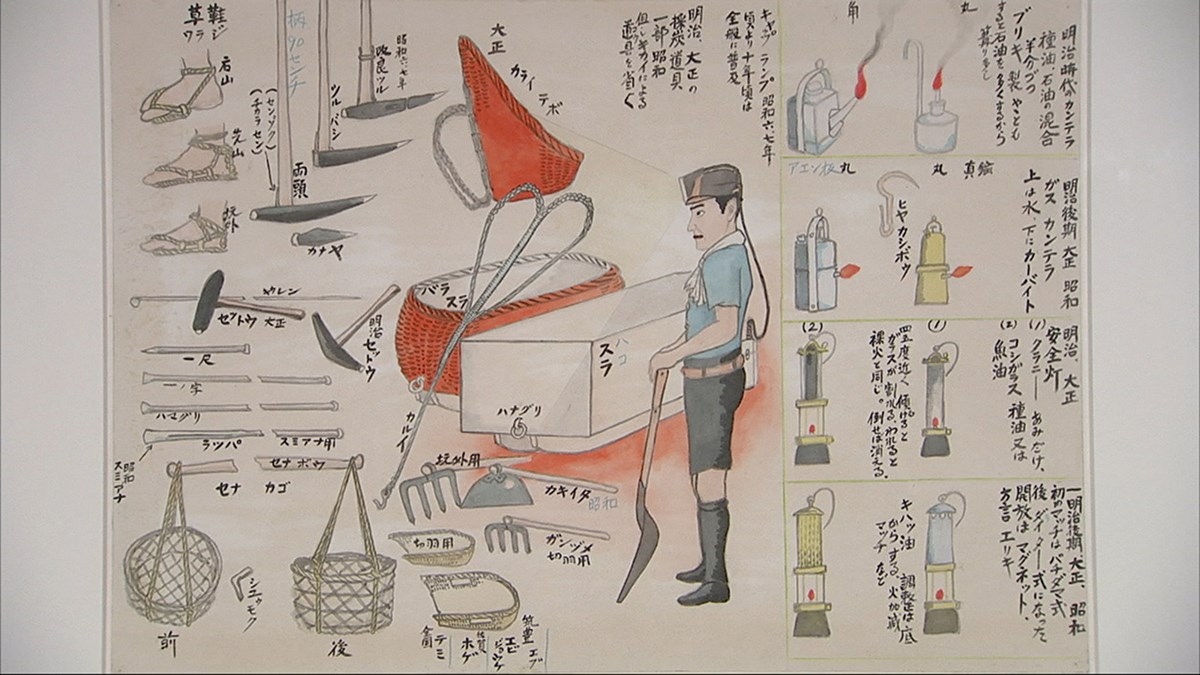 明治時代のカンテラ
種油、石油の混合
半分づつ
ブリキ製
丸
角
キャップランプ 昭和六、七年
頃より十年頃は
全般に普及
明治、大正の
採炭道具
一部昭和
大正
カライ
テボ
昭和六、七年
改良ツル
ツルバシ
柄、90センチ
両頭
カナヤ
鞋
草
ワラジ
石山
先山
坑外
(センヅク)
(チカラセン)
キウレン
セットウ 大正
明治 セットウ
一尺
一ノ字
ハマグリ
ラッパ
スミアナ用
昭和
スミアナ
セナボウ
セナ カゴ
前
後
シュモク
バラ
スラ
ハコ
スラ
ハナグリ
カルイ
坑外用
カキイタ
昭和
ガンヅメ
切羽用
切羽用
筑豊 エブ
佐賀 ホゲ
全国 テミ
アエン板 丸
丸 真鍮
ヒヤカシボウ
明治後期 大正 昭和
ガス カンテラ
上は水、下にカーバイト
明治、大正
安全灯
(1) クラニー あみだけ、
(2) コシガラス 種油又は
魚油
(1)
(2)
四五度近く傾けると
ガラスが割れる、われると
裸火と同じ。倒せば消える。
明治後期、大正、昭和
初のマッチはバチダマ式
後、ダイナード式になった
開放はマグネット、
方言 エリキ
キハツ油 調整は底
からする、火加減
マッチなど